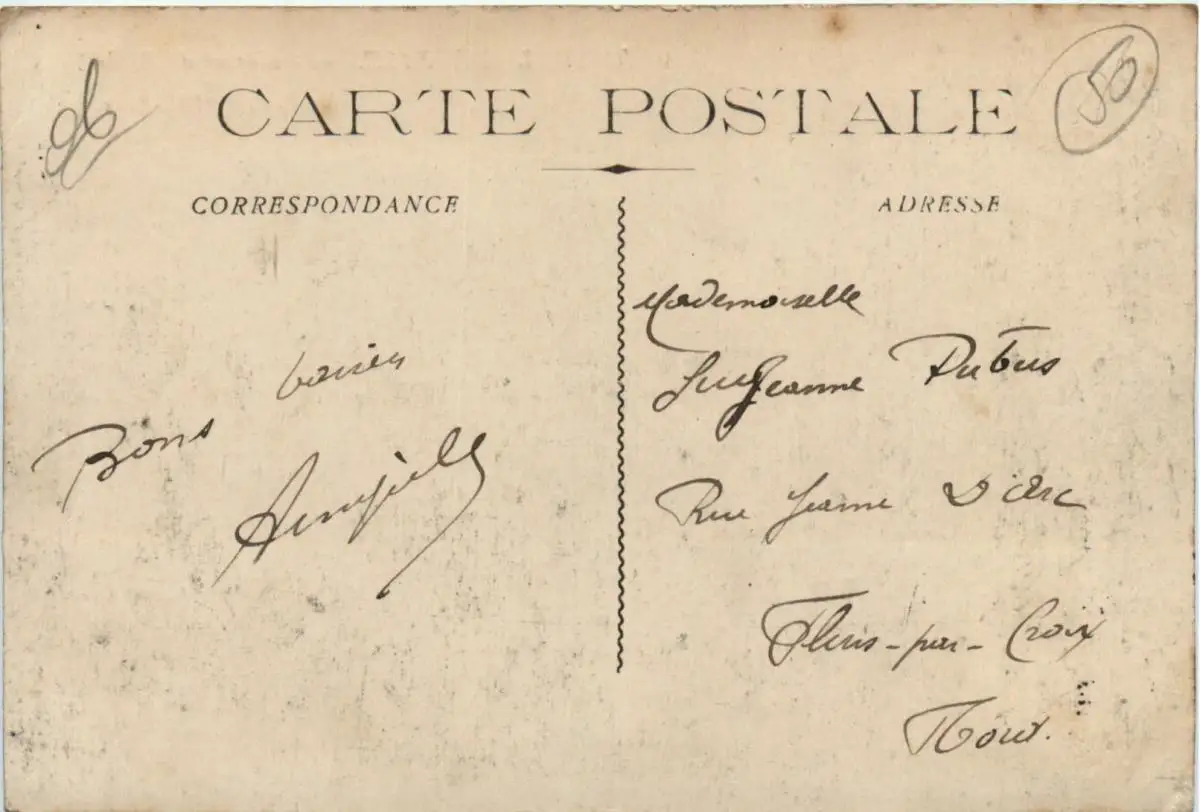 50
CARTE POSTALE
CORRESPONDANCE
Bons baisers
ADRESSE
Mademoiselle
Suzanne Dubus
Rue Jeanne D'Arc
Flers-par-Croix
Nord.